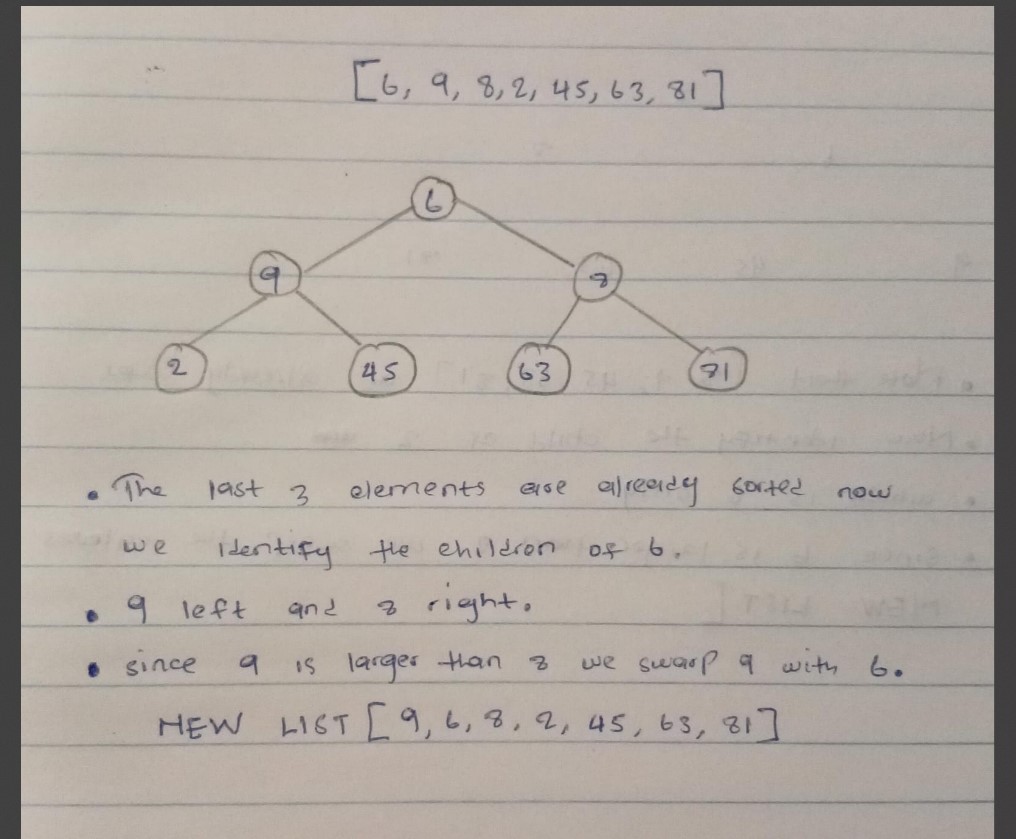 [6, 9, 8, 2, 45, 63, 81]
6
9 8
2 45 63 81
• The last 3 elements are already sorted now
we identify the children of 6.
• 9 left and 8 right.
• since 9 is larger than 8 we swap 9 with 6.
NEW LIST [9, 6, 8, 2, 45, 63, 81]